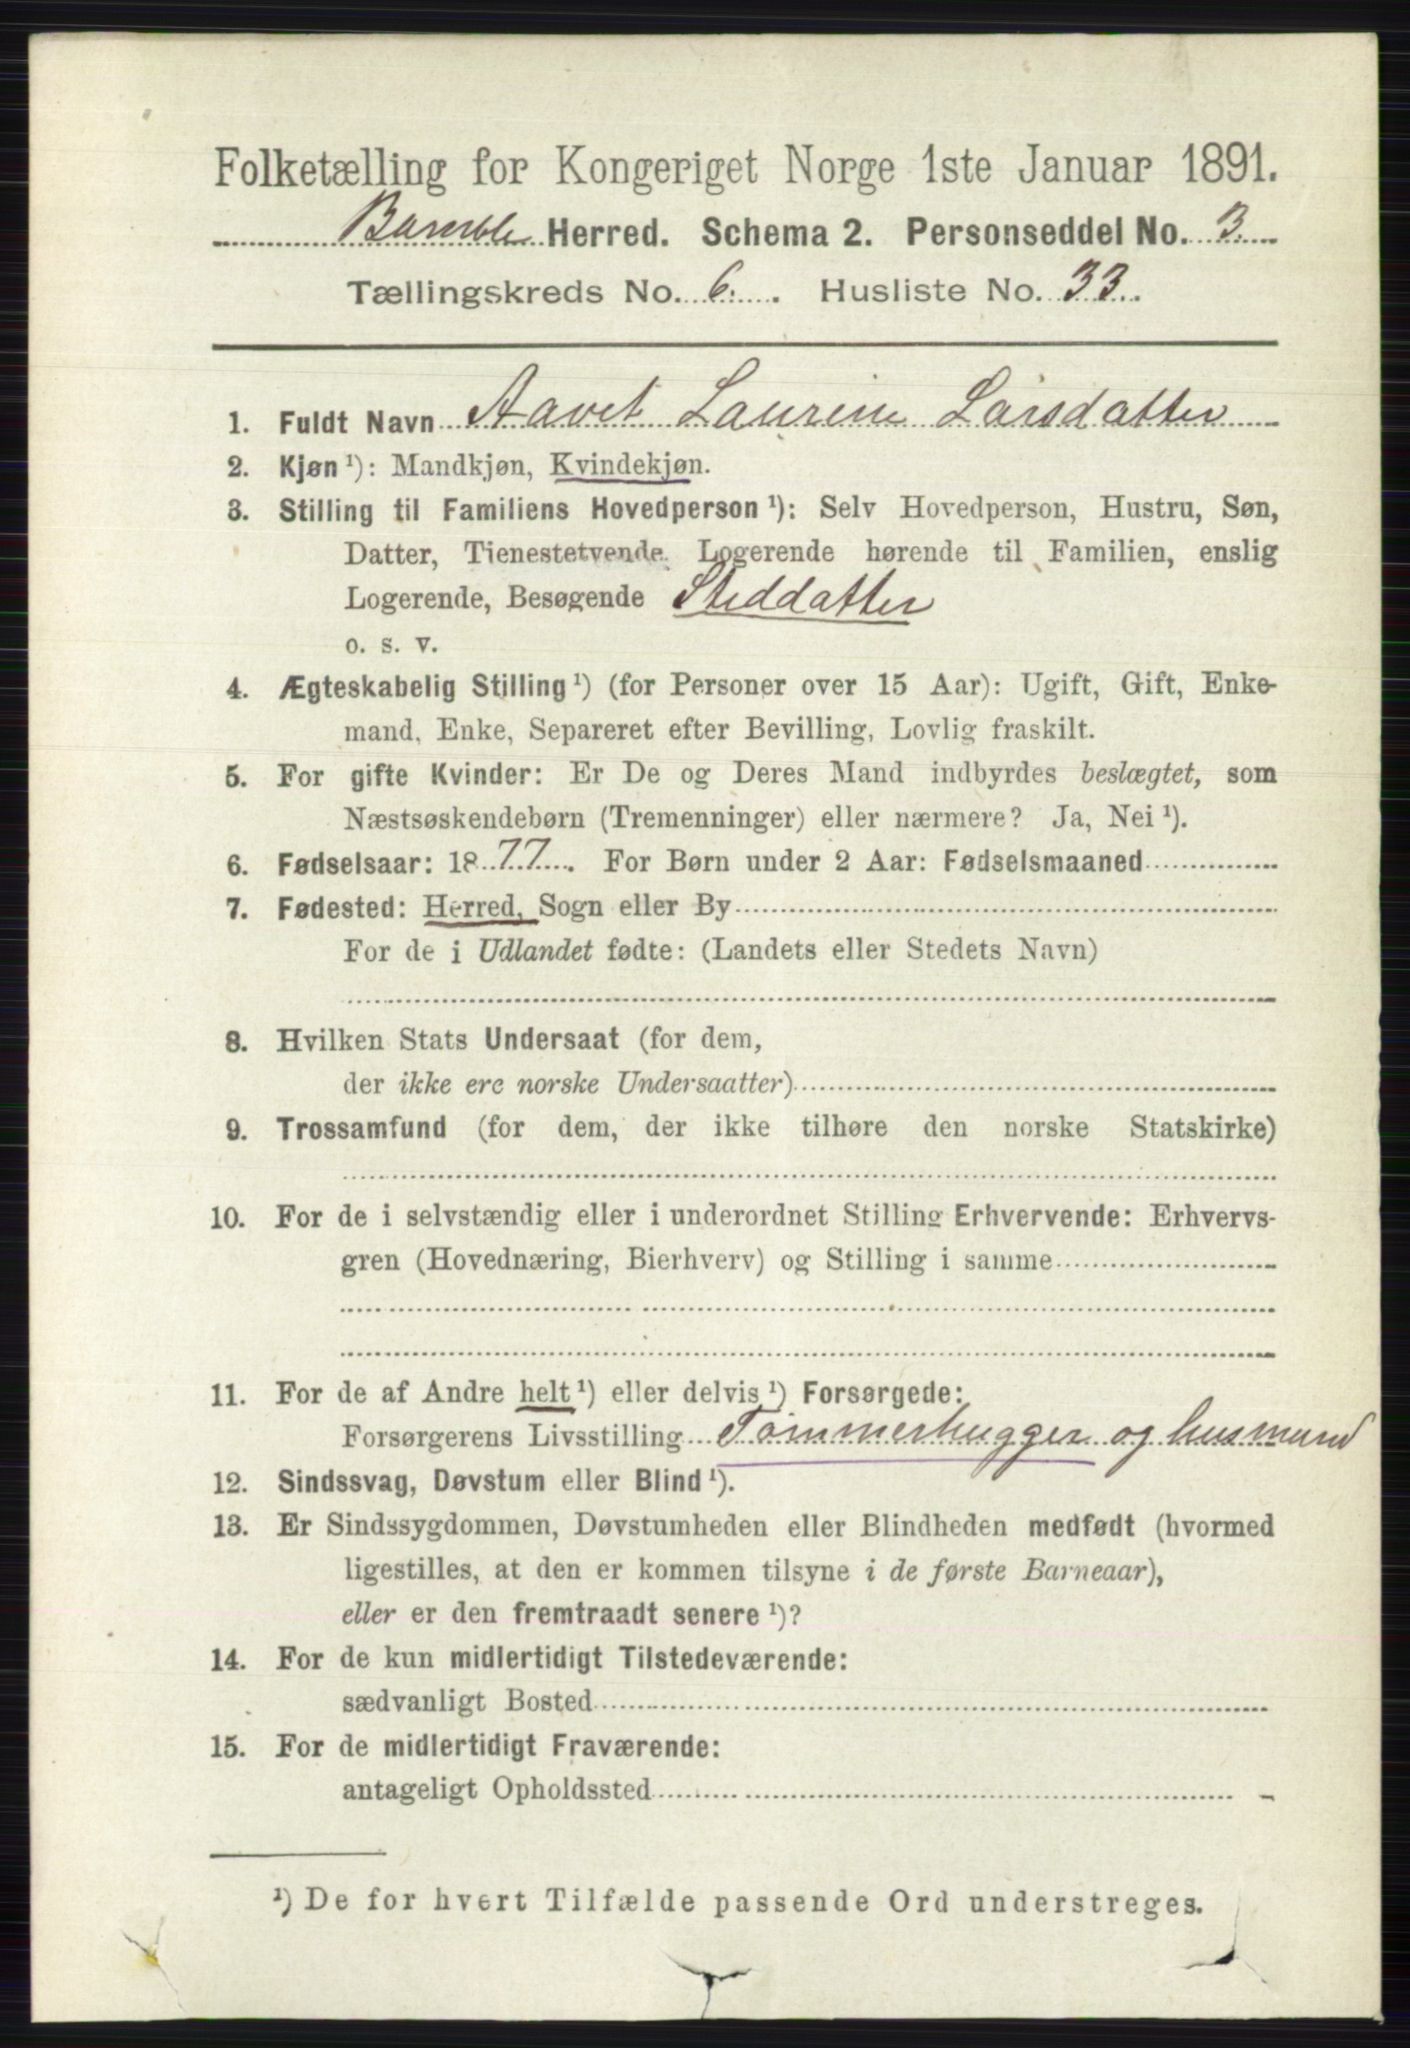 Folketælling for Kongeriget Norge 1ste Januar 1891.
Bamble Herred. Schema 2. Personseddel No. 3.
Tællingskreds No. 6. Husliste No. 33.
1. Fuldt Navn Aavet Laurine Larsdatter
2. Kjøn ¹): Mandkjøn, Kvindekjøn.
3. Stilling til Familiens Hovedperson ¹): Selv Hovedperson, Hustru, Søn,
Datter, Tienestetyende, Logerende hørende til Familien, enslig
Logerende, Besøgende Steddatter
o. s. v.
4. Ægteskabelig Stilling ¹) (for Personer over 15 Aar): Ugift, Gift, Enke-
mand, Enke, Separeret efter Bevilling, Lovlig fraskilt.
5. For gifte Kvinder: Er De og Deres Mand indbyrdes beslægtet, som
Næstsøskendebørn (Tremenninger) eller nærmere? Ja, Nei ¹).
6. Fødselsaar: 1877. For Børn under 2 Aar: Fødselsmaaned
7. Fødested: Herred, Sogn eller By
For de i Udlandet fødte: (Landets eller Stedets Navn)
8. Hvilken Stats Undersaat (for dem,
der ikke ere norske Undersaatter)
9. Trossamfund (for dem, der ikke tilhøre den norske Statskirke)
10. For de i selvstændig eller i underordnet Stilling Erhvervende: Erhvervs-
gren (Hovednæring, Bierhverv) og Stilling i samme
11. For de af Andre helt ¹) eller delvis ¹) Forsørgede:
Forsørgerens Livsstilling Tømmerhugger og husmand
12. Sindssvag, Døvstum eller Blind ¹).
13. Er Sindssygdommen, Døvstumheden eller Blindheden medfødt (hvormed
ligestilles, at den er kommen tilsyne i de første Barneaar),
eller er den fremtraadt senere ¹)?
14. For de kun midlertidigt Tilstedeværende:
sædvanligt Bosted
15. For de midlertidigt Fraværende:
antageligt Opholdssted
¹) De for hvert Tilfælde passende Ord understreges.